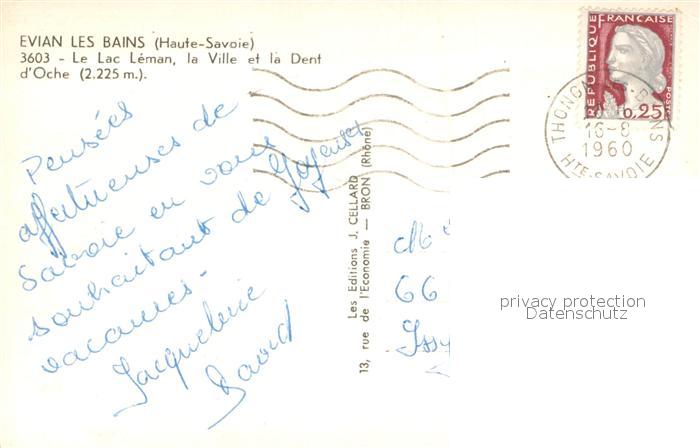 EVIAN LES BAINS (Haute-Savoie)
3603 - Le Lac Léman, la Ville et la Dent
d'Oche (2.225 m.).
Pensées
affectueuses de
Savoie en vous
souhaitant de joyeuses
vacances.
Jacqueline
David
Les Editions J. CELLARD
13, rue de l'Economie — BRON (Rhône)
REPUBLIQUE FRANÇAISE
0,25
POSTES
THONON
16-8
1960
HTE-SAVOIE
M
66
Issy
privacy protection
Datenschutz